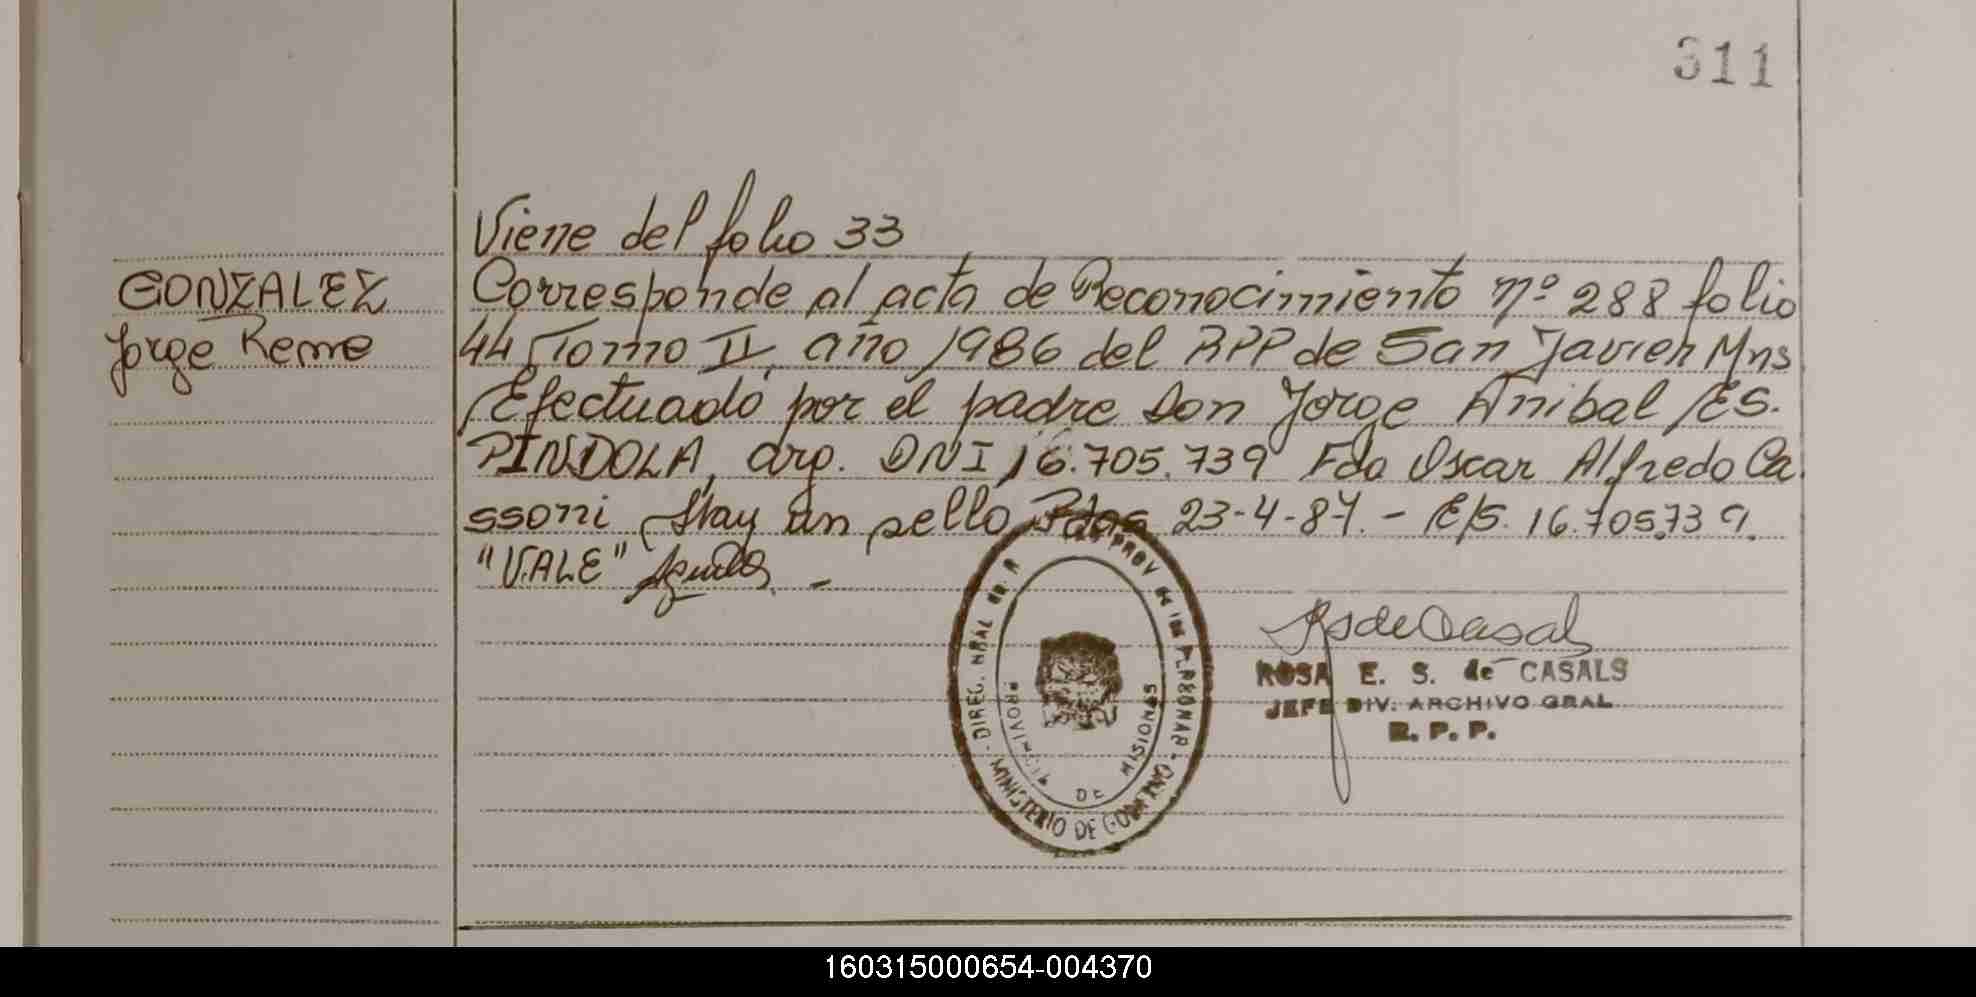 311
Viene del folio 33
GONZALEZ
Jorge Rene
Corresponde al acta de Reconocimiento nº 288 folio
44 Tomo II, año 1986 del RPP de San Javier Mns
Efectuado por el padre Don Jorge Anibal ES-
PINDOLA, arg. DNI 16.705.739 Fdo Oscar Alfredo Ca-
ssoni Hay un sello Pdas 23-4-87. - E/S. 16.705.739.
"VALE"
ROSA E. S. de CASALS
JEFE DIV. ARCHIVO GRAL
R. P. P.
PROVINCIA DE MISIONES
MINISTERIO DE GOBIERNO
160315000654-004370